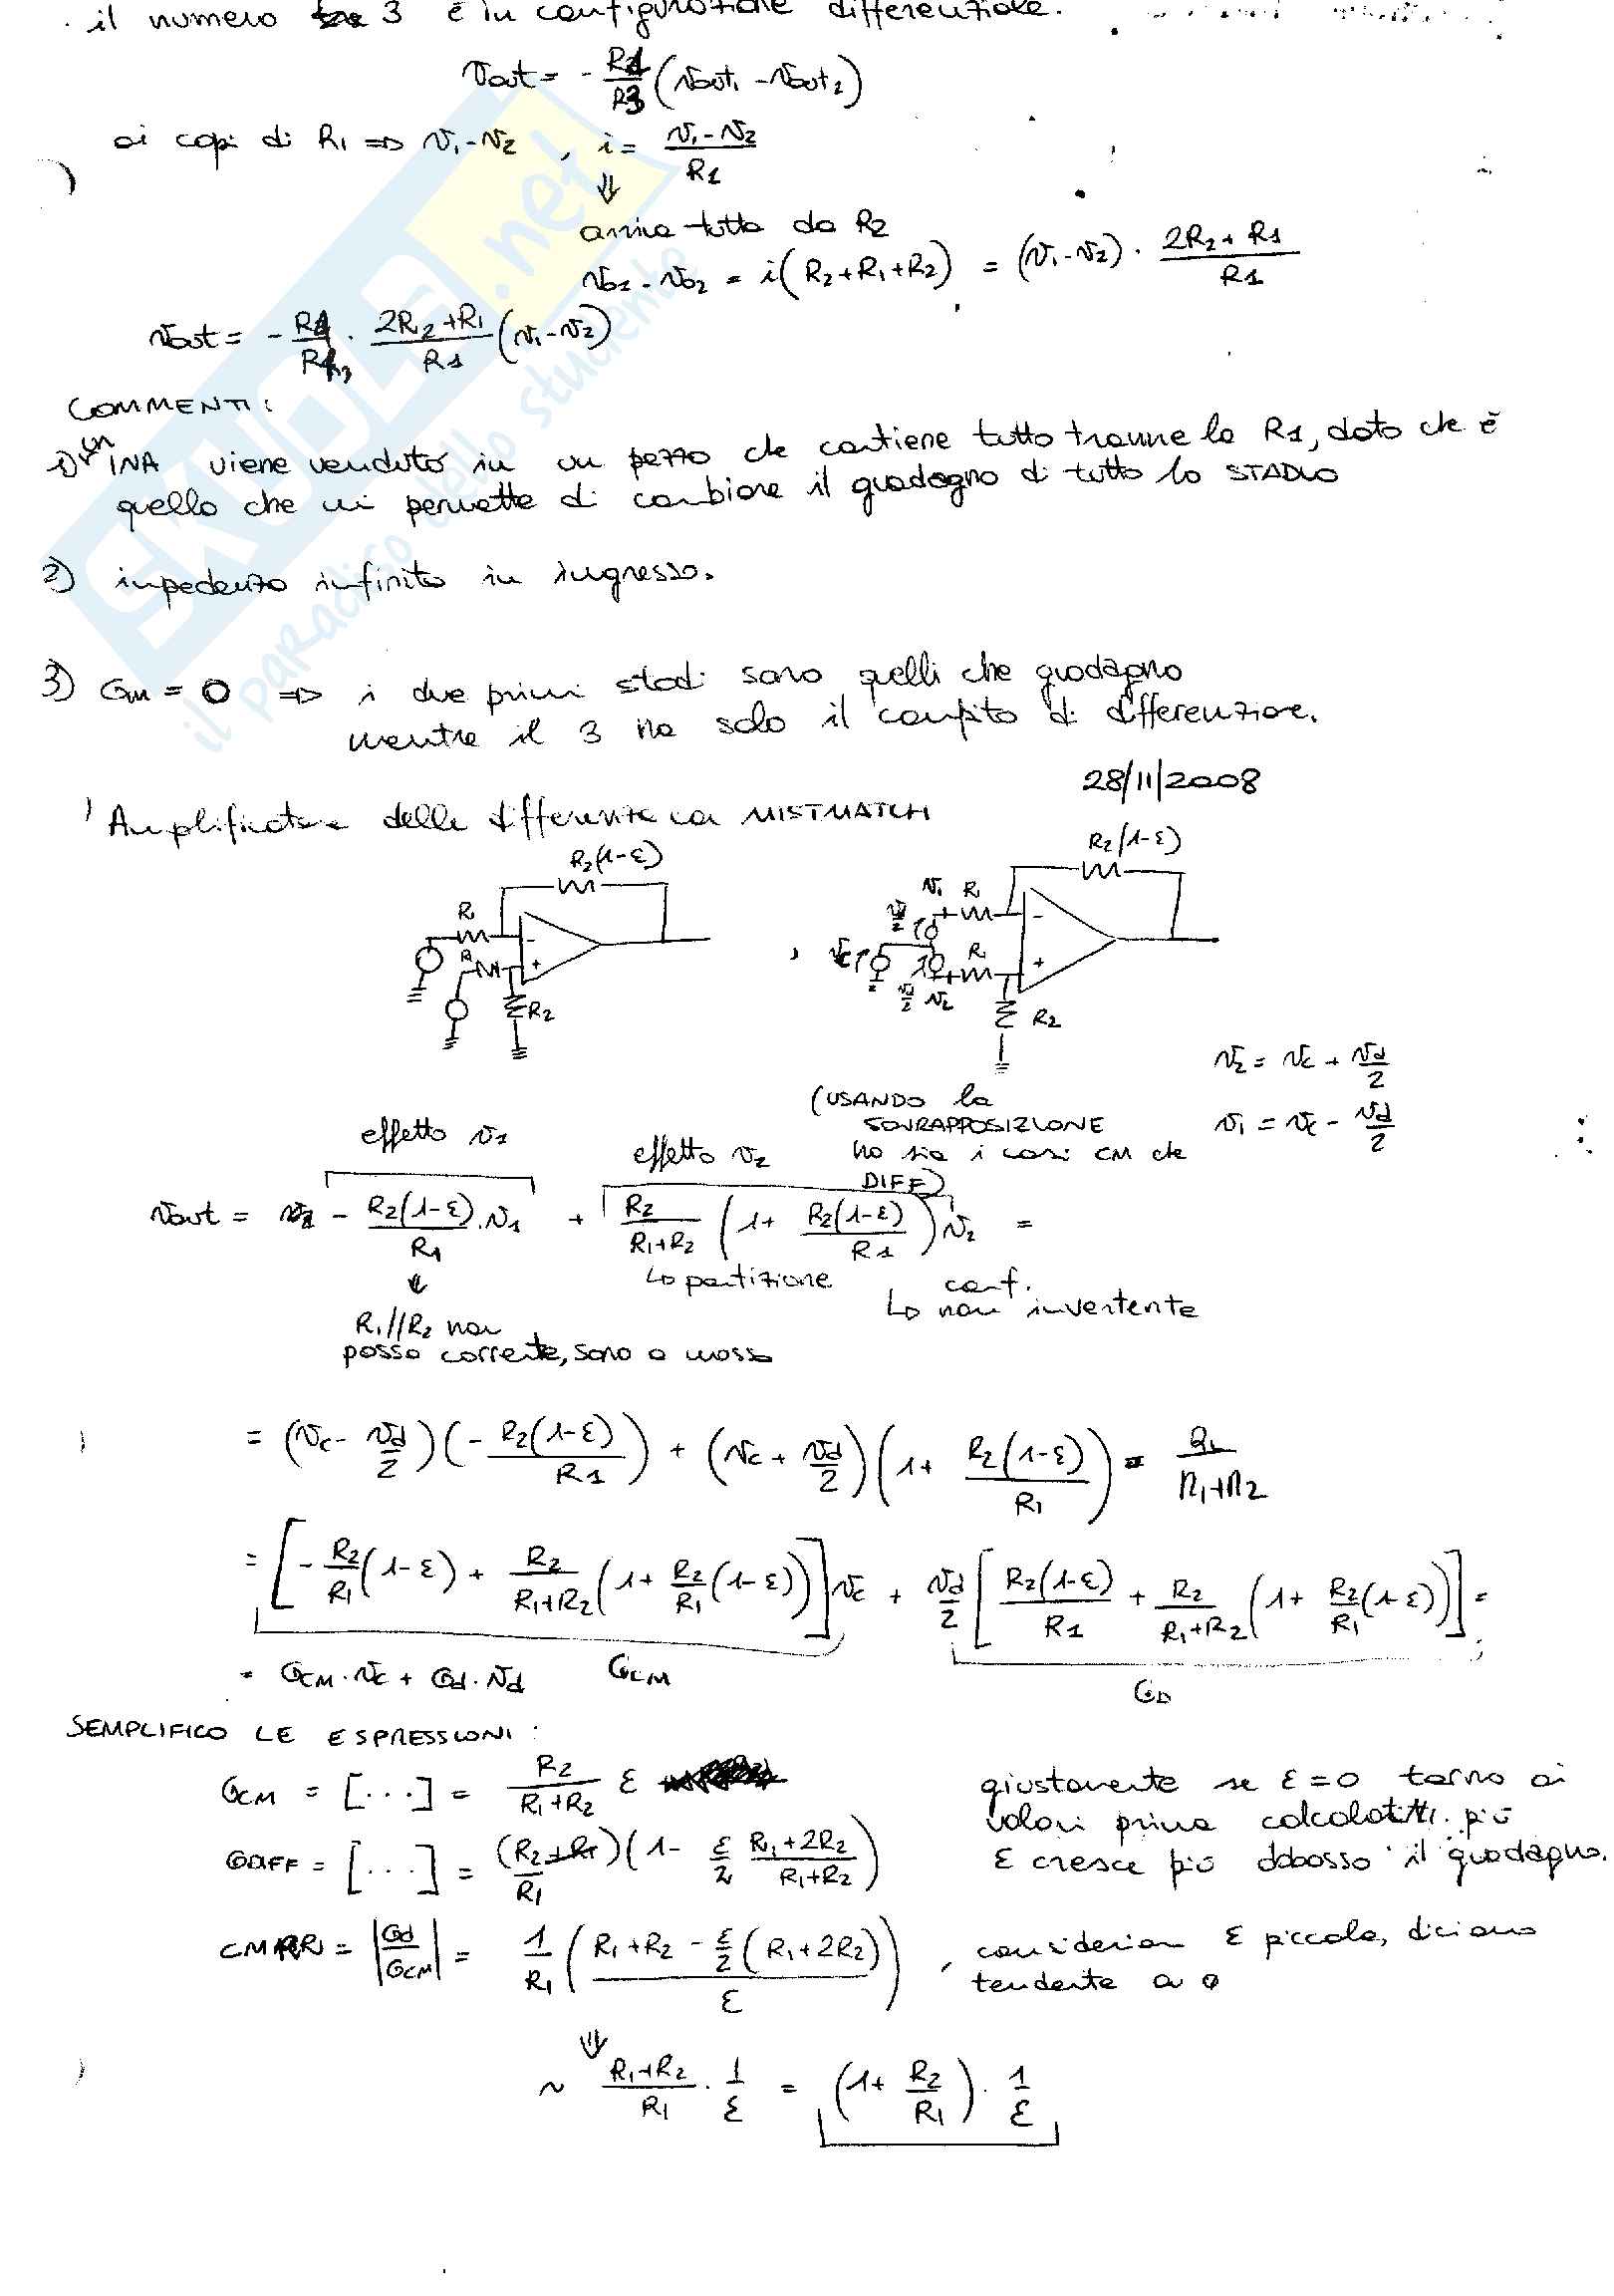 . il numero 3 è in configurazione differenziale.
Vout = - R4/R3 (Vout1 - Vout2)
ai capi di R1 => V1-V2 , i = (V1-V2)/R1
⇓
arriva tutta da R2
Vo1 - Vo2 = i(R2+R1+R2) = (V1-V2) · (2R2+R1)/R1
Vout = - R4/R3 · (2R2+R1)/R1 (V1-V2)
COMMENTI:
1) un INA viene venduto in un pezzo che contiene tutto tranne la R1, dato che è
quello che mi permette di cambiare il guadagno di tutto lo STADIO
2) impedenza infinita in ingresso.
3) Gm = 0 => i due primi stadi sono quelli che guadagno
mentre il 3 ha solo il compito di differenziare.
28/11/2008
Amplificatore delle differenze con MISTMATCH
R2(1-ε)
R1
R1
-
+
R2
,
R2(1-ε)
V1 R1
Vd/2
Vc
R1
Vd/2 V2
-
+
R2
V2 = Vc + Vd/2
V1 = Vc - Vd/2
(USANDO la
SOVRAPPOSIZIONE
ho sia i casi CM che
DIFF)
effetto V1
effetto V2
Vout = - R2(1-ε)/R1 · V1 + R2/(R1+R2) (1 + R2(1-ε)/R1) V2 =
↳ partizione
conf.
↳ non invertente
⇓
R1//R2 non
passa corrente, sono a massa
= (Vc - Vd/2)(- R2(1-ε)/R1) + (Vc + Vd/2)(1 + R2(1-ε)/R1) = R2/(R1+R2)
= [- R2/R1 (1-ε) + R2/(R1+R2) (1 + R2/R1 (1-ε))] Vc + Vd/2 [R2(1-ε)/R1 + R2/(R1+R2) (1 + R2/R1 (1-ε))] =
GCM
GD
= GCM · Vc + Gd · Vd
SEMPLIFICO LE ESPRESSIONI:
GCM = [...] = R2/(R1+R2) ε
giustamente se ε=0 torno ai
valori prima calcolati. più
ε cresce più abbasso il guadagno.
GDIFF = [...] = (R2/R1)(1 - ε/2 (R1+2R2)/(R1+R2))
CMRR = |Gd/GCM| = 1/R1 ((R1+R2 - ε/2 (R1+2R2))/ε) , consideriam ε piccolo, diciamo
tendente a 0
⇓
~ (R1+R2)/R1 · 1/ε = (1 + R2/R1) · 1/ε
SKUOLA.net
il paradiso dello studente